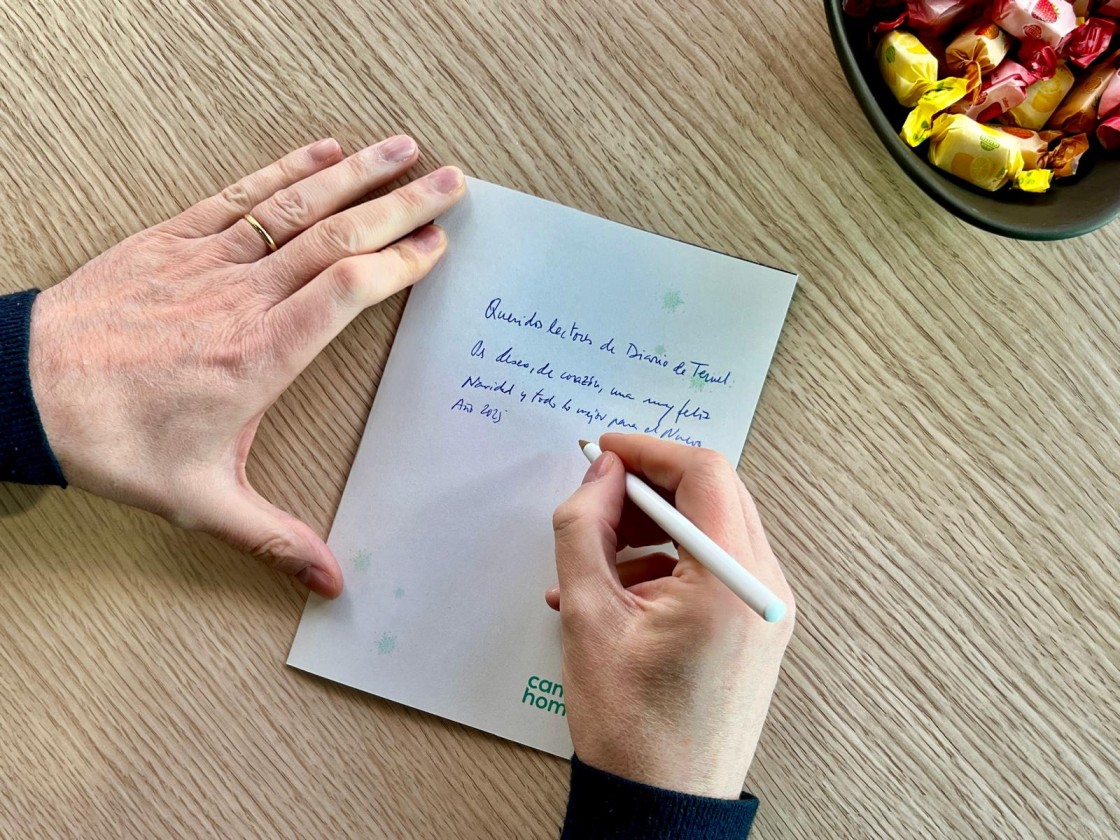 Queridos lectores de Diario de Teruel.
Os deseo, de corazón, una muy feliz
Navidad y todo lo mejor para el Nuevo
Año 2025
can
hom